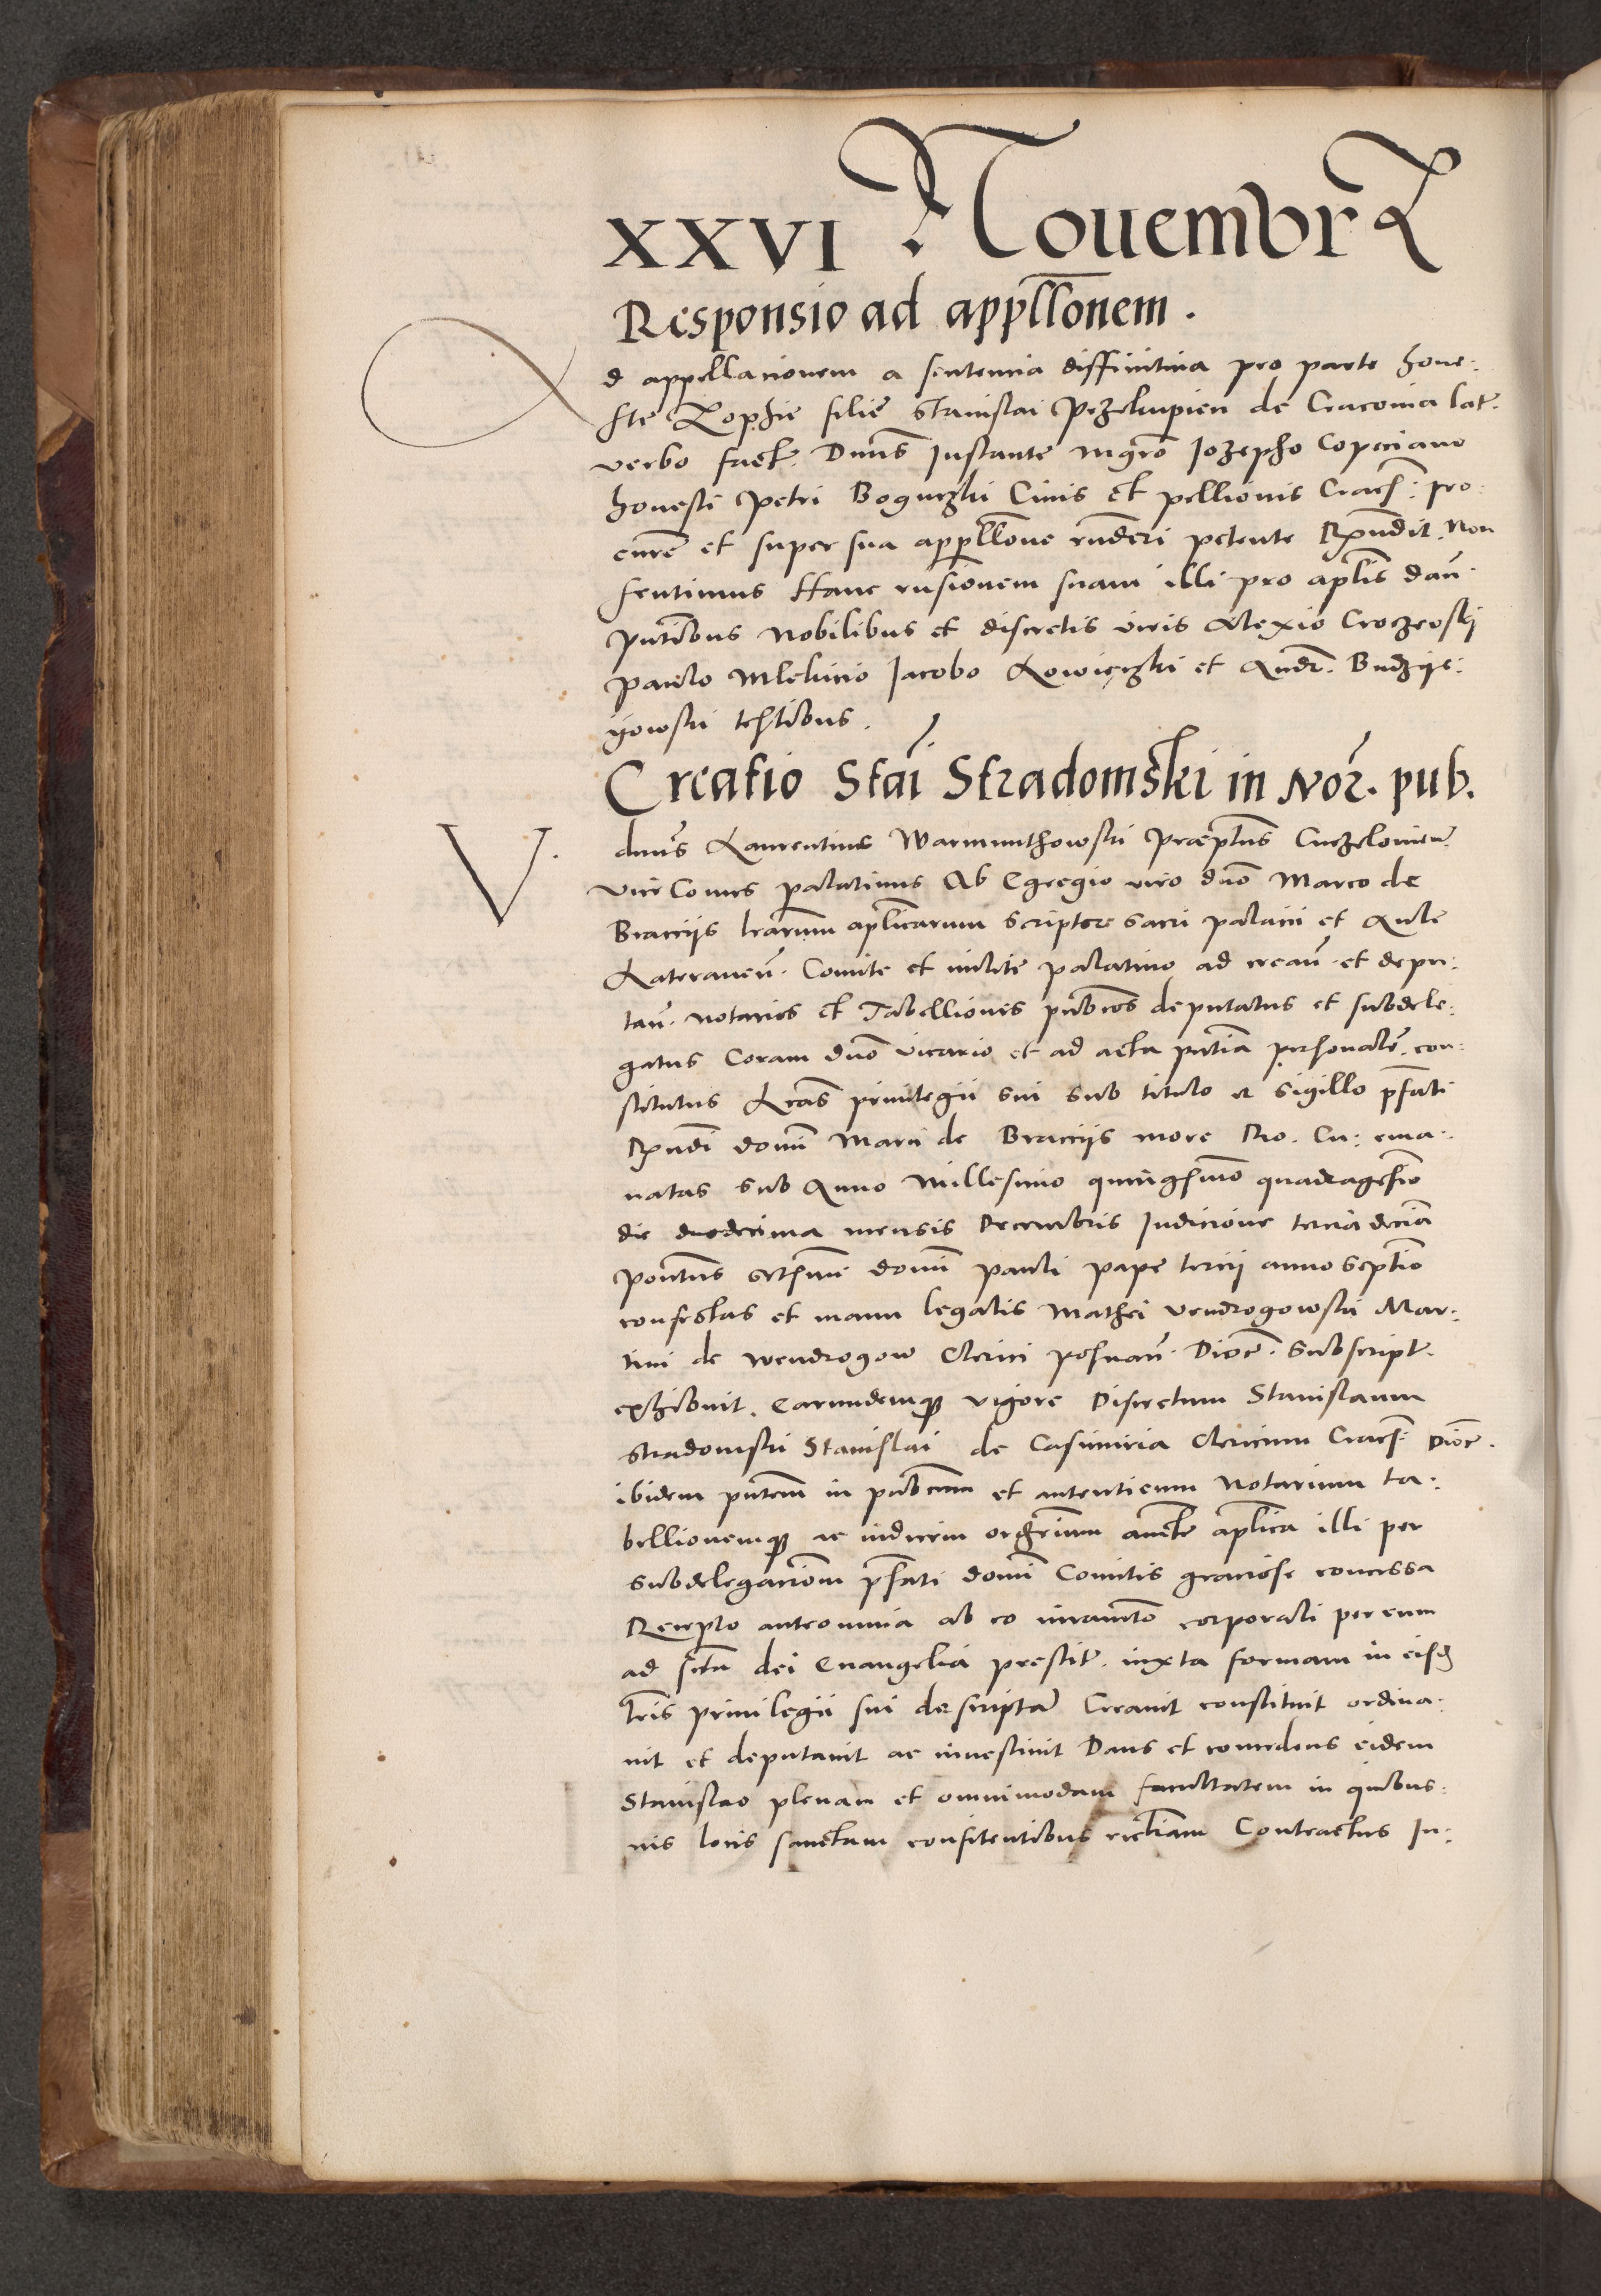 XXVI Nouembr
Responsio ad appllonem.
Ad appellacionem a sentencia diffinitiua pro parte hone:
ste Zophie filie Stanislai Przelupien de Cracouia lat.
verbo fact. Dnus Instante mgro Iozepho Copeciano
honesti Petri Bogurzki Ciuis et pellionis Cracē: pro:
cure et super sua appllone rnderi petente Rndit. Non
sentimus Hanc rnsionem suam illi pro aplis dan
pntibus Nobilibus et discretis viris Alexio Croczewskj
Paulo Mleknio Jacobo Lowiczki et Andr. Budzije:
yowski testibus.
Creatio Stai Stradomski in Nor. pub.
V. dnus Laurentius Warmunthowski Praeptus Curzelouien
Vice Comes palatinus Ab Egregio viro dno Marco de
Bracciis lrarum aplicarum scriptore sacri palacii et Aule
Lateranen. Comite et milite palatino ad crean. et depu:
tan. notarios et Tabelliones publicos deputatus et subdele:
gatus Coram dno vicario et ad acta pntia personalr. con:
stitutus Lras priuilegii sui sub titulo et sigillo pfati
Rndi domi Marci de Bracciis more Ro. Cu: ema:
natas sub Anno Millesimo quingsmo quadragesio
die duodecima mensis Decembris Indicione tercia decia
Pontus domi Pauli pape tercii anno septio
confectas et manu legalis Mathei Vendrogowski Mar:
tini de Wendrogow Clerici Posnan. Dioc. Subscript.
exhibuit. Earundemque vigore Discretum Stanislaum
Stradomski Stanislai de Casimiria Clericum Cracē: Dioc.
ibidem pntem in publicum et autenticum Notarium ta:
bellionemque ac iudicem ordinrium aucte aplica illi per
subdelegaciom pfati domi Comitis graciose concessa
Recepto anteomnia ab eo iuramto corporali per eum
ad scta dei Euangelia prestit. iuxta formam in eisd
lris priuilegii sui descripta Creauit constituit ordina:
uit et deputauit ac inuestiuit Dans et concedens eidem
Stanislao plenam et omnimodam facultatem in quibus:
uis locis sanctam confitentibus Contractus In: